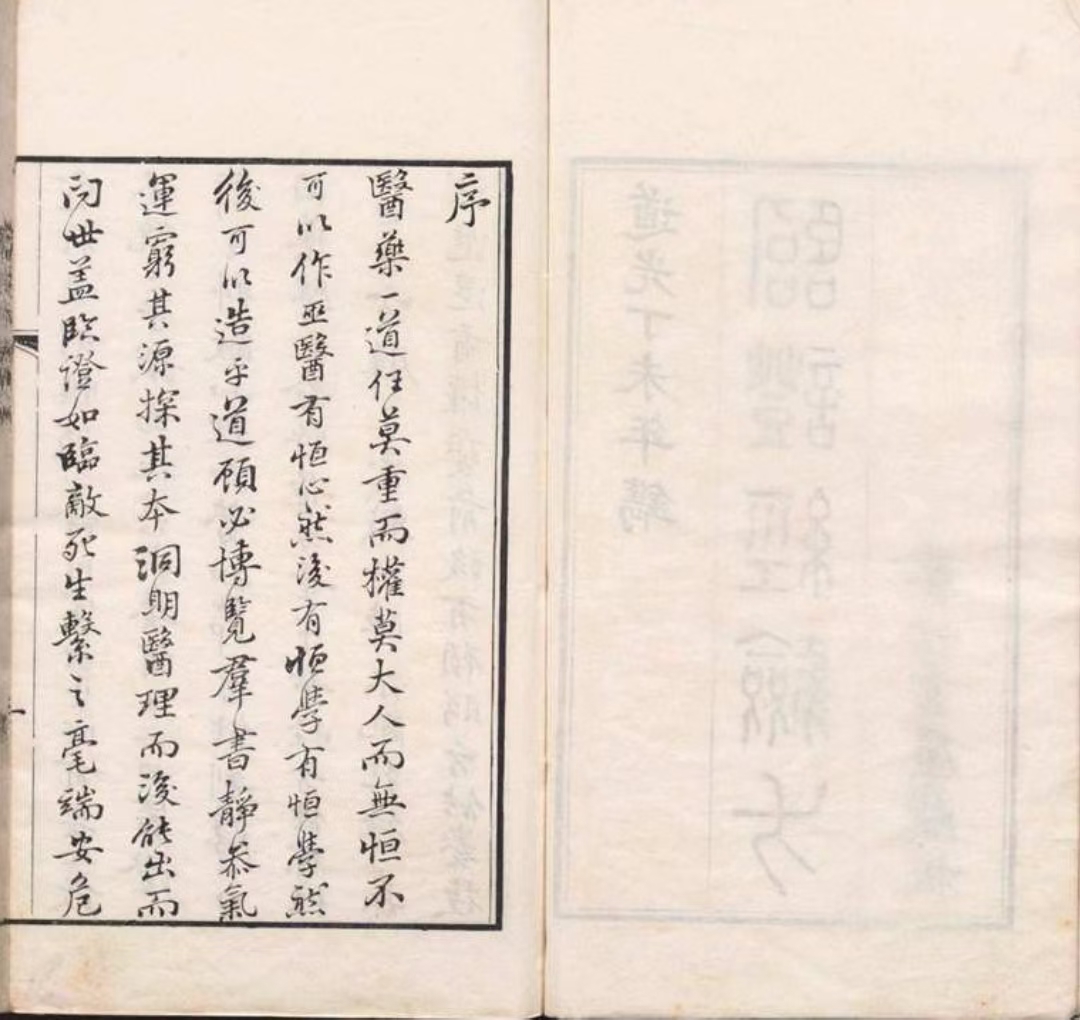 臨證經驗方
道光丁未年鐫
序
醫藥一道任莫重而權莫大人而無恒不
可以作巫醫有恒心然後有恒學有恒學然
後可以造乎道顧必博覽羣書靜叅氣
運窮其源探其本洞明醫理而後能出而
问世盖臨證如臨敵死生繫之毫端安危